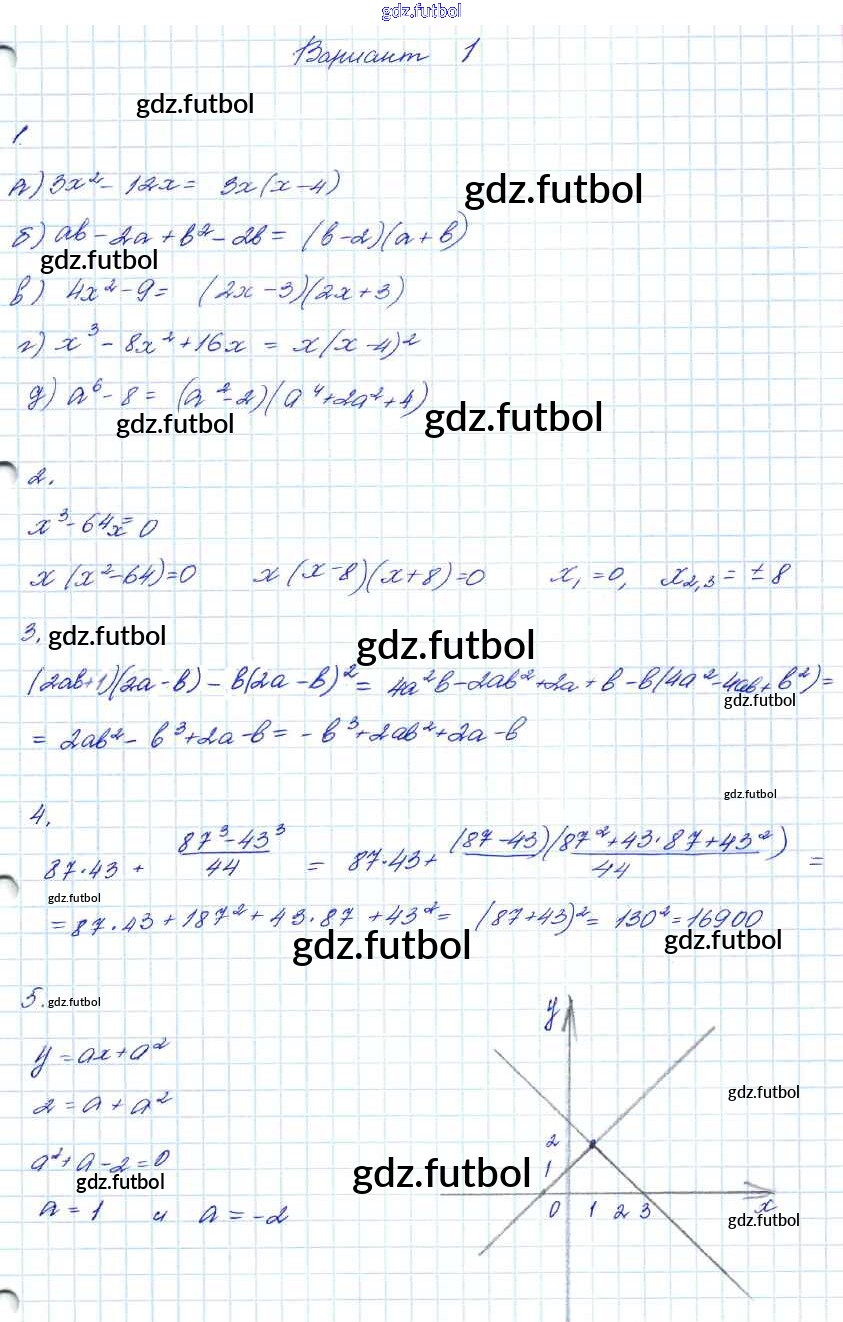 gdz.futbol
Вариант 1
gdz.futbol
1.
а) 3x² - 12x = 3x(x-4)
gdz.futbol
б) ab - 2a + b² - 2b = (b-2)(a+b)
gdz.futbol
в) 4x² - 9 = (2x-3)(2x+3)
г) x³ - 8x² + 16x = x(x-4)²
д) a⁶ - 8 = (a²-2)(a⁴+2a²+4)
gdz.futbol gdz.futbol
2.
x³ - 64x = 0
x(x²-64)=0 x(x-8)(x+8)=0 x₁=0, x₂,₃ = ±8
3. gdz.futbol gdz.futbol
(2ab+1)(2a-b) - b(2a-b)² = 4a²b-2ab²+2a+b-b(4a²-4ab+b²)=
gdz.futbol
= 2ab² - b³+2a-b = -b³+2ab²+2a-b
gdz.futbol
4.
87·43 + (87³-43³)/44 = 87·43+ (87-43)(87²+43·87+43²)/44 =
gdz.futbol
= 87·43+187²+43·87+43² = (87+43)² = 130² = 16900
gdz.futbol gdz.futbol
5. gdz.futbol
y = ax+a²
2 = a+a²
a²+a-2=0
gdz.futbol gdz.futbol
a = 1 и a = -2
y
gdz.futbol
2
1
0 1 2 3 x
gdz.futbol